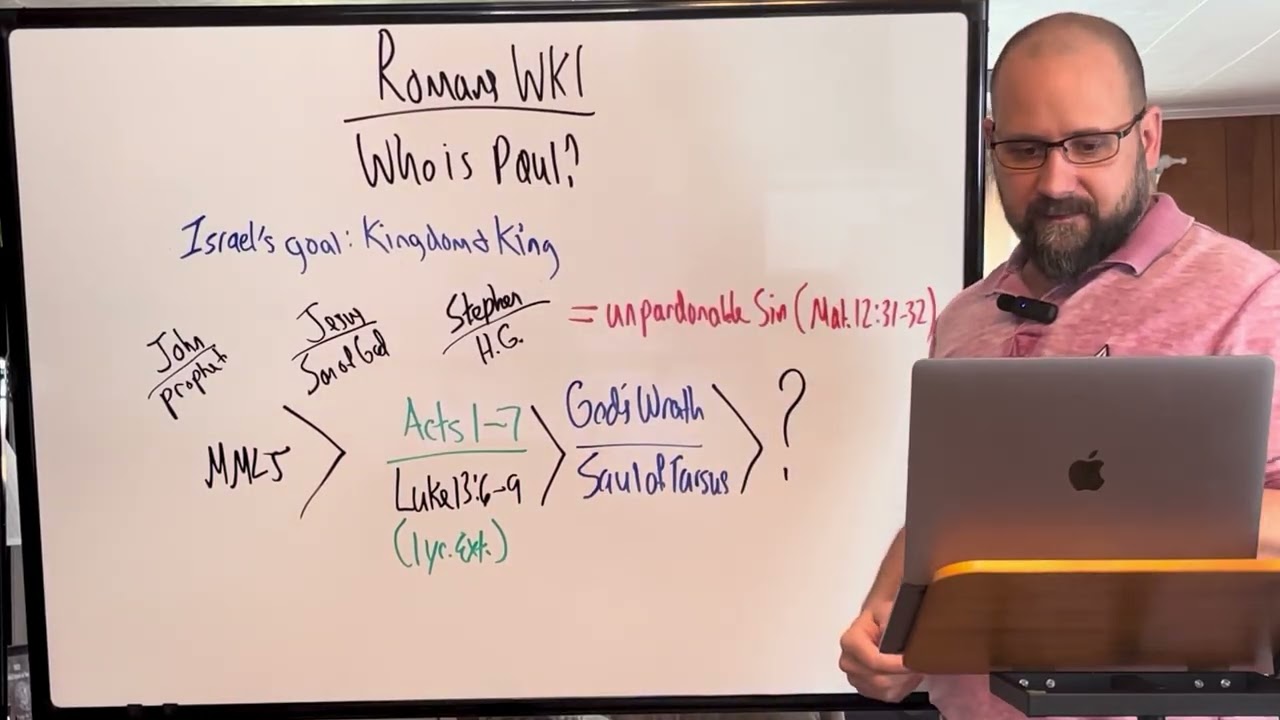 Romans WK1
Who is Paul?
Israel's goal: Kingdom & King
John
prophet
Jesus
Son of God
Stephen
H.G.
= unpardonable Sin (Mat. 12:31-32)
MMLJ
Acts 1-7
Luke 13:6-9
(1 yr. Ext.)
God's Wrath
Saul of Tarsus
?